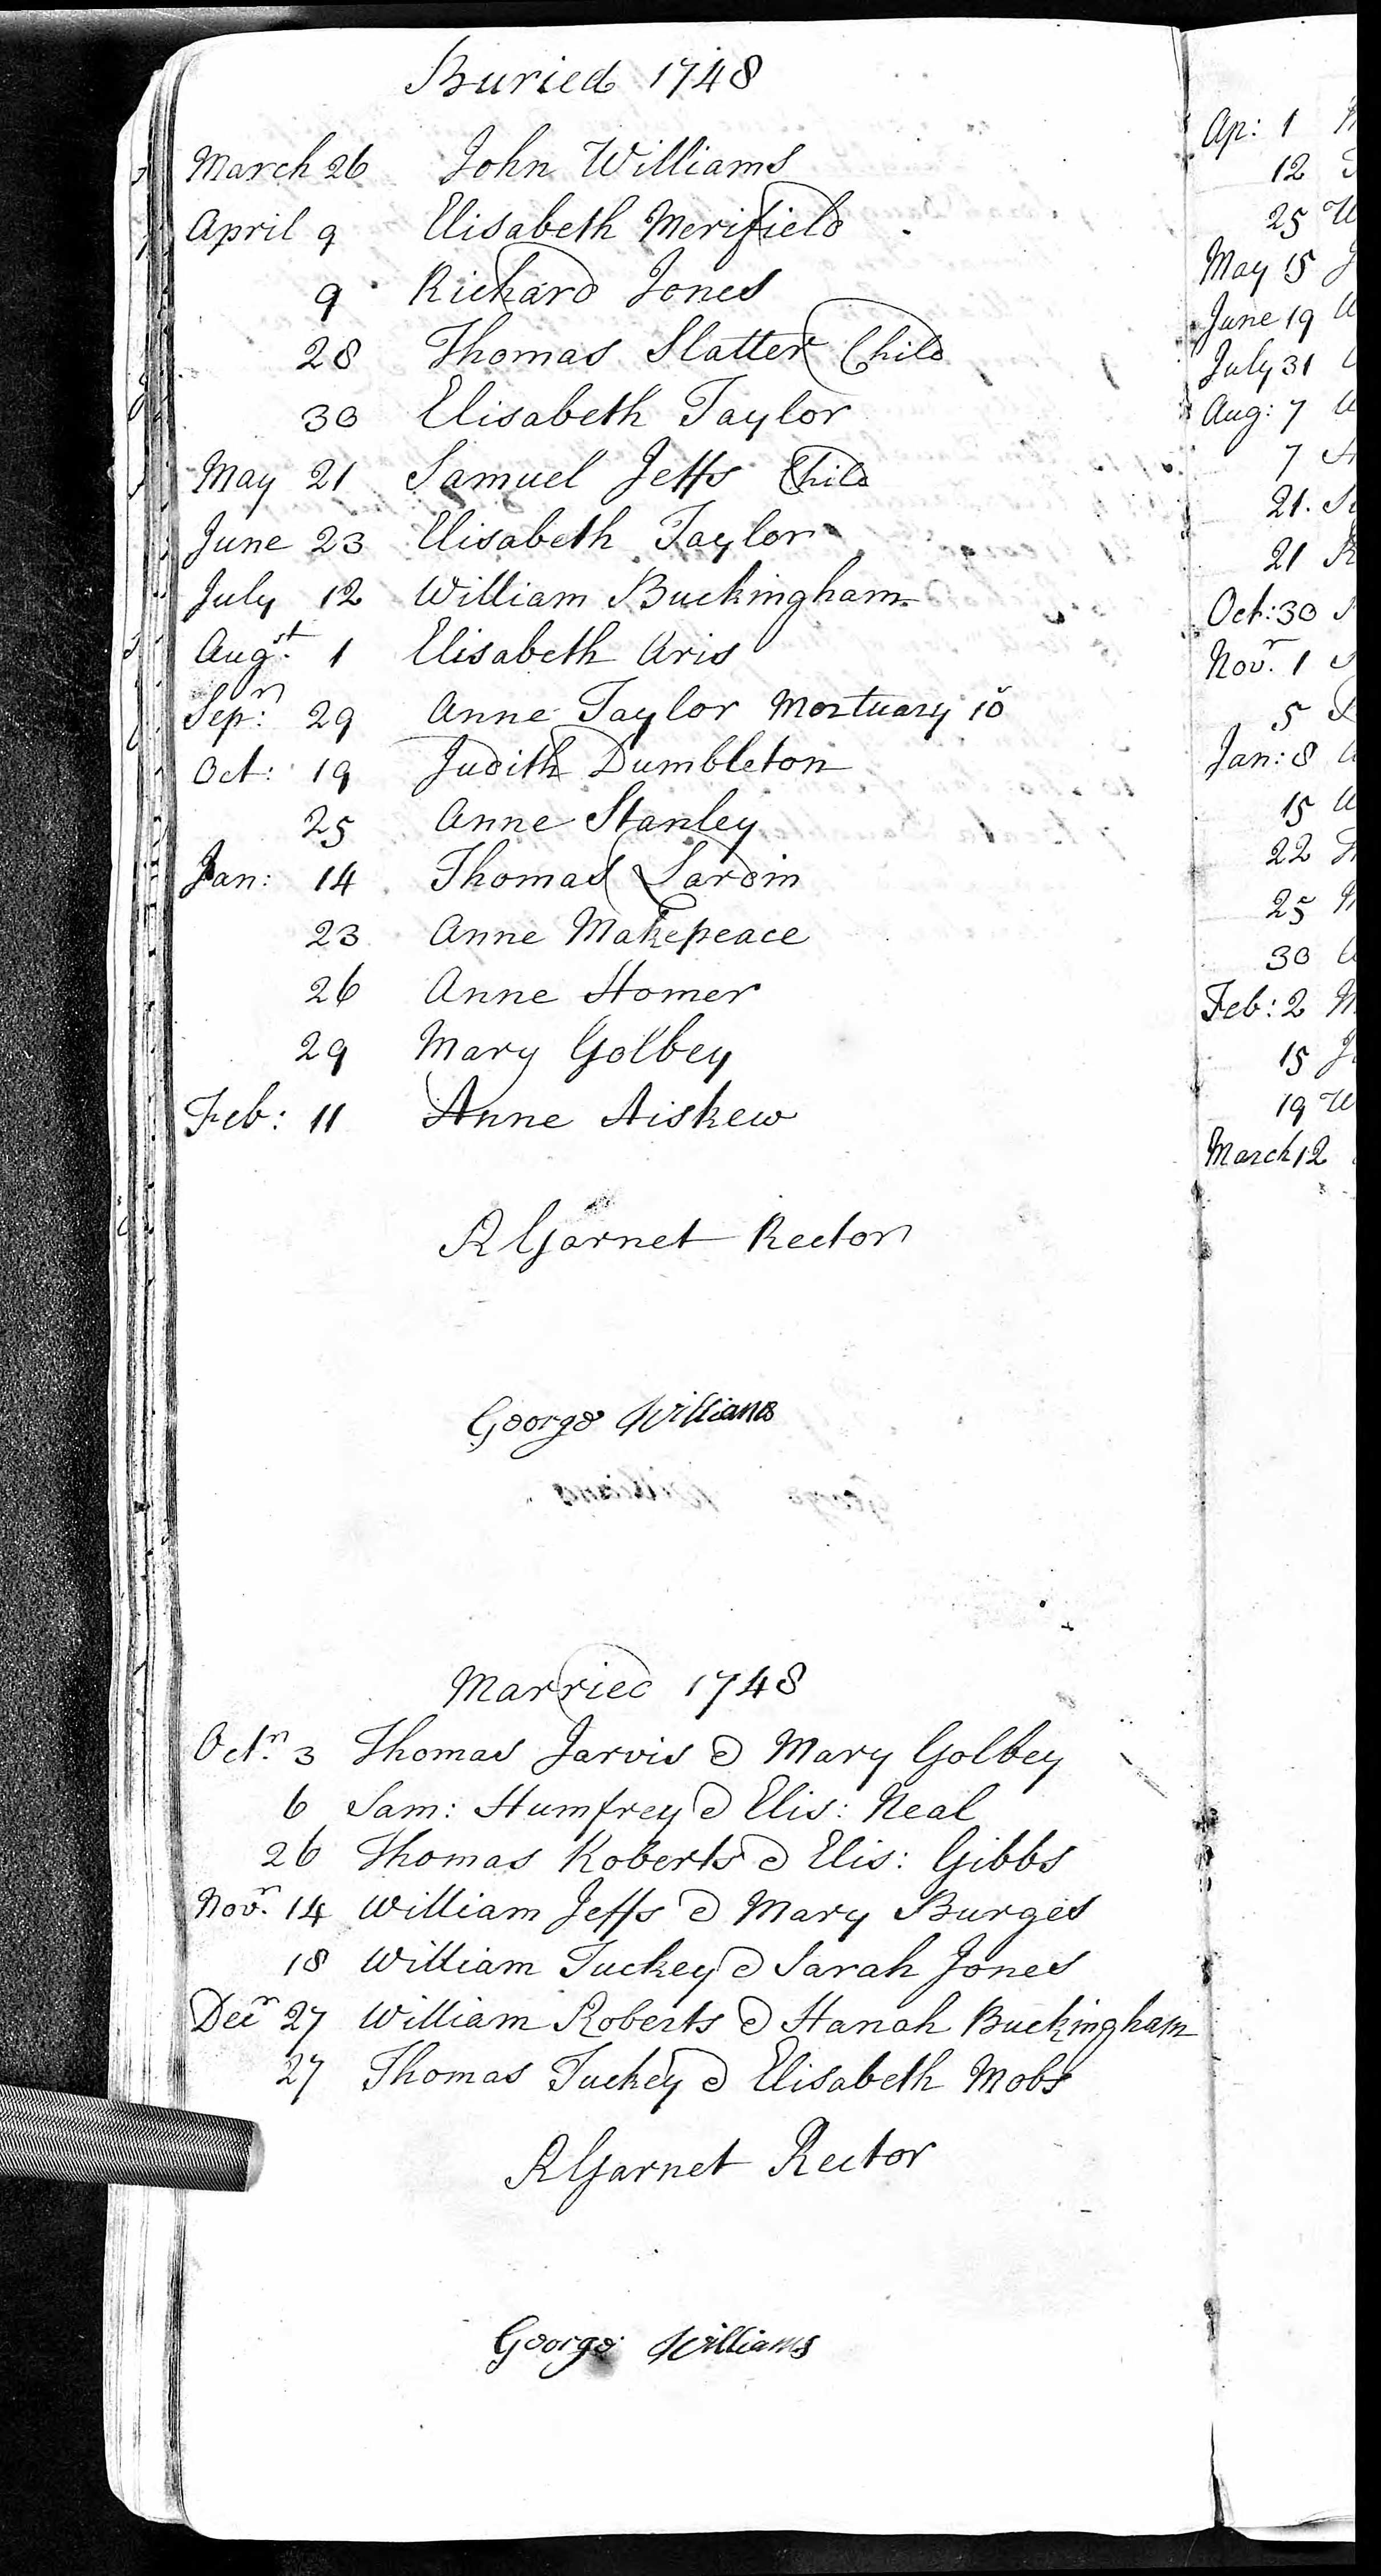 Buried 1748
March 26 John Williams
April 9 Elisabeth Merifield
9 Richard Jones
28 Thomas Slatter Child
30 Elisabeth Taylor
May 21 Samuel Jeffs Child
June 23 Elisabeth Taylor
July 12 William Buckingham
Augst. 1 Elisabeth Aris
Sepr: 29 Anne Taylor Mortuary 10s
Oct: 19 Judith Dumbleton
25 Anne Stanley
Jan: 14 Thomas Sardin
23 Anne Makepeace
26 Anne Homer
29 Mary Golbey
Feb: 11 Anne Aiskew
R Garnet Rector
George Williams
Married 1748
Octr. 3 Thomas Jarvis & Mary Golbey
6 Sam: Humfrey & Elis: Neal
26 Thomas Roberts & Elis: Gibbs
Novr. 14 William Jeffs & Mary Burges
18 William Tuckey & Sarah Jones
Decr 27 William Roberts & Hanah Buckingham
27 Thomas Tuckey & Elisabeth Mobs
R Garnet Rector
George Williams
Ap: 1
12
25
May 15
June 19
July 31
Aug: 7
7
21.
21
Oct: 30
Novr. 1
5
Jan: 8
15
22
25
30
Feb: 2
15
19
March 12